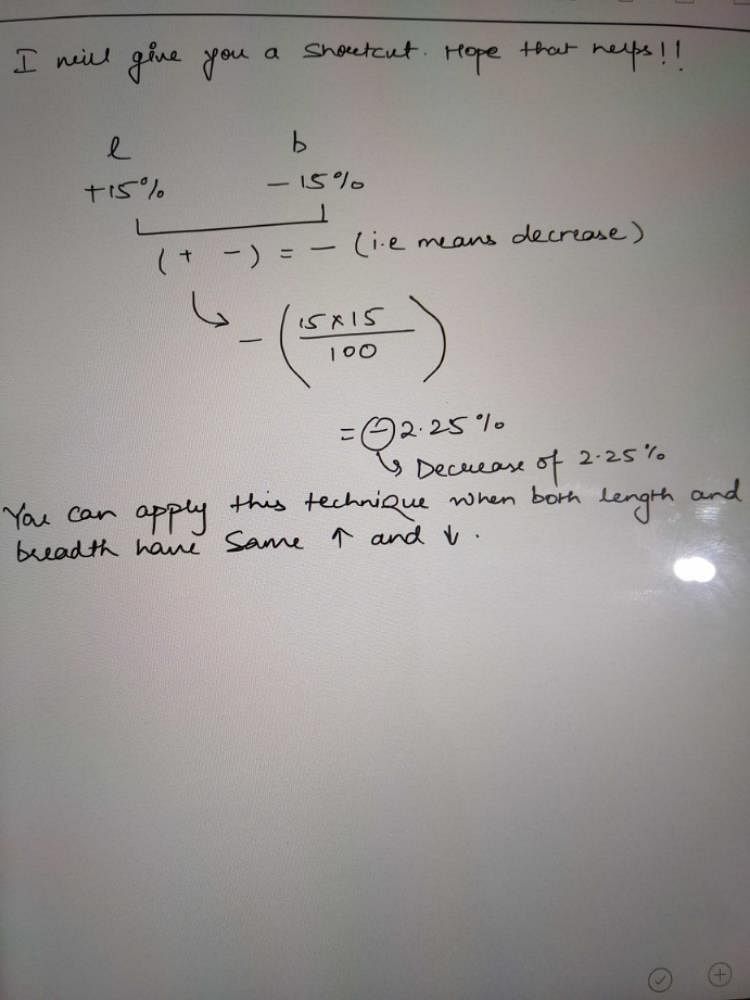 I will give you a Shortcut. Hope that helps!!
l b
+15% - 15%
(+ -) = - (i.e means decrease)
- (15×15/100)
= - 2.25%
Decrease of 2.25%
You can apply this technique when both length and
breadth have Same ↑ and ↓.